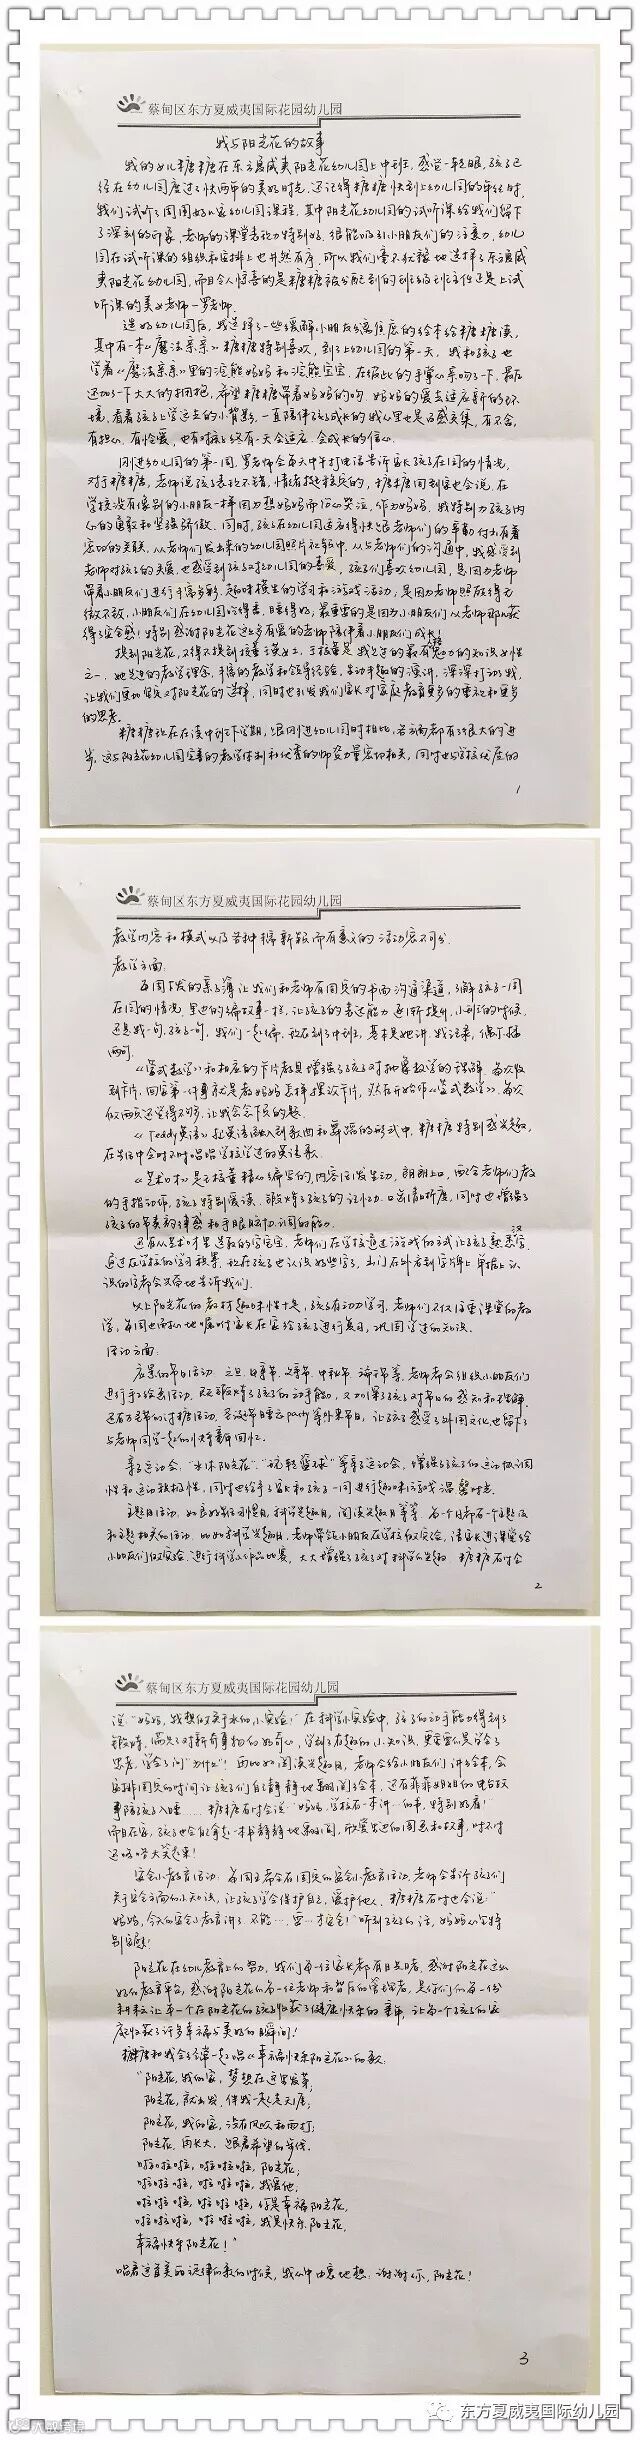 蔡甸区东方夏威夷国际花园幼儿园
我与阳光花的故事
我的女儿糖糖在东方夏威夷阳光花幼儿园上中班，感觉一转眼，孩子已
经在幼儿园度过了快两年的美好时光，还记得糖糖快到上幼儿园的年纪时，
我们试听了周围好几家幼儿园课程，其中阳光花幼儿园的试听课给我们留下
了深刻的印象，老师的课堂表现力特别好，很能吸引小朋友们的注意力，幼儿
园在试听课的组织和安排上也井然有序，所以我们毫不犹豫地选择了东方夏威
夷阳光花幼儿园，而且令人惊喜的是糖糖被分配到的班级班主任还是上试
听课的美女老师—罗老师。
选好幼儿园后，我选择了一些缓解小朋友分离焦虑的绘本给糖糖读，
其中有一本《魔法亲亲》糖糖特别喜欢，到了上幼儿园的第一天，我和孩子也
学着《魔法亲亲》里的浣熊妈妈和浣熊宝宝，在彼此的手掌心亲吻了一下，最后
还加了一下大大的拥抱，希望糖糖带着妈妈的吻、妈妈的爱去适应新的环
境，看着孩子上学远去的小背影，一直陪伴孩子成长的我心里也是百感交集，有不舍，
有担心，有怜爱，也有对孩子终有一天会适应、会成长的信心。
刚进幼儿园的第一周，罗老师会每天中午打电话告诉家长孩子在园的情况，
对于糖糖，老师说孩子表现不错，情绪挺稳定的，糖糖回到家也会说，在
学校没有像别的小朋友一样因为想妈妈而伤心哭泣，作为妈妈，我特别为孩子内
心的勇敢和坚强骄傲，同时，孩子在幼儿园适应得快跟老师们的辛勤付出有着
密切的关联，从老师们发出来的幼儿园照片和视频中，从与老师们的沟通中，我感受到
老师对孩子的关爱，也感受到孩子对幼儿园的喜爱，孩子们喜欢幼儿园，是因为老师
带着小朋友们进行丰富多彩、趣味横生的学习和游戏活动，是因为老师照顾得无
微不致，小朋友们在幼儿园吃得香，睡得好，最重要的是因为小朋友们从老师那儿获
得了安全感！特别感谢阳光花这么多有爱的老师陪伴着小朋友们成长！
提到阳光花，不得不提到核董事王校女士，王校董是我见过的最有魅力的知识女性
之一，她先进的教学理念，丰富的教学和领导经验，生动丰趣的演讲，深深打动了我，
让我们更加坚定对阳光花的选择，同时也引发我们家长对家庭教育更多的重视和更多
的思考。
糖糖现在在读中班下学期，跟刚进幼儿园时相比，各方面都有了很大的进
步，这与阳光花幼儿园完善的教学体制和优秀的师资力量密切相关，同时也与学校优质的
1
蔡甸区东方夏威夷国际花园幼儿园
教学内容和模式以及各种措新颖而有意义的活动密不可分。
教学方面：
每周下发的亲子簿让我们和老师有固定的书面沟通渠道，了解孩子一周
在园的情况，里边的编故事一栏，让孩子的表达能力逐渐提升，小班的时候，
还是我一句，孩子一句，我们一起编，现在到了中班，基本是她讲，我记录，偶尔插
两句。
《蒙式数学》和相应的卡片教具增强了孩子对抽象数学的理解，每次收
到卡片，回家第一件事就是教妈妈怎样摆放卡片，然后开始做《蒙式数学》，每次
做两页还觉得不够，让我念余下页的题。
《Teddy英语》把英语融入到歌曲和舞蹈的形式中，糖糖特别感兴趣，
在生活中会时不时唱唱学校学过的英语歌。
《艺术口才》是王校董精心编写的，内容活泼生动，朗朗上口，配合老师们教
的手指动作，孩子特别爱读，锻炼了孩子的记忆力、口齿清晰度，同时也增强了
孩子的节奏韵律感和手眼脑协调的能力。
还有从艺术口才里选取的字宝宝，老师们在学校通过游戏的方式让孩子熟悉汉字，
通过在学校的学习积累，现在孩子也认识好些字了，出门在外看到字牌上、单据上认
识的字都会兴奋地告诉我们。
以上阳光花的教材趣味性十足，孩子有动力学习，老师们不仅注重课堂的教
学，每周也耐心地嘱咐家长在家给孩子进行复习，巩固学过的知识。
活动方面：
应景的节日活动：元旦、母亲节、父亲节、中秋节、端午节等，老师都会组织小朋友们
进行手工绘画活动，既锻炼了孩子的动手能力，又加深了孩子对节日的感知和理解，
还有万圣节的讨糖活动，圣诞节日雪女party等外来节日，让孩子感受了外国文化，也留下了
与老师同学一起的快乐童年回忆。
亲子运动会："水沐阳光花"、"玩转篮球"等亲子运动会，增强了孩子的运动协调
性和运动积极性，同时也给予了家长和孩子一同进行趣味活动的温馨时光。
主题月活动，如良好生活习惯月，科学兴趣月，阅读兴趣月等等，每一个月都有一个主题及
和主题相关的活动，比如科学兴趣月，老师带领小朋友在学校做实验，请家长进课堂给
小朋友们做实验，进行科学小作品比赛，大大增强了孩子对科学的兴趣，糖糖有时会
2
蔡甸区东方夏威夷国际花园幼儿园
说"妈妈，我想做关于水的小实验！"在科学小实验中，孩子的动手能力得到了
锻炼，满足了对新奇事物的好奇心，学到了有趣的小知识，更重要的是学会了
思考，学会了问"为什么"！再比如阅读兴趣月，老师会给小朋友们讲绘本，会
安排固定的时间让孩子们自己静静地翻阅绘本，还有菲菲姐姐的电台故
事陪孩子入睡……糖糖有时会说"妈妈，学校有一本讲…的书，特别好看！"
而且在家，孩子也会自己拿起一本书静静地翻阅，欣赏书边的图画和故事，时不时
还咯咯大笑起来！
安全小教育活动：每周主席会有固定的安全小教育活动，老师会告诉孩子们
关于安全方面的小知识，让孩子学会保护自己，爱护他人，糖糖有时也会说"
妈妈，今天的安全小教育讲了不能…要…才安全！"听到孩子的话，妈妈心里特
别安慰！
阳光花在幼儿教育上的努力，我们每一位家长都有目共睹，感谢阳光花这么
好的教育平台，感谢阳光花的每一位老师和背后的管理者，是你们的每一份
耕耘让每一个在阳光花的孩子收获了健康快乐的童年，让每一个孩子的家
庭收获了许多幸福与美好的瞬间！
糖糖和我会经常一起唱《幸福快乐阳光花》的歌：
"阳光花，我的家，梦想在这里发芽；
阳光花，就出发，伴我一起走天涯；
阳光花，我的家，没有风吹和雨打；
阳光花，再长大，跟着希望的步伐。
啦啦啦啦，啦啦啦啦，阳光花；
啦啦啦啦，啦啦啦啦，我爱他；
啦啦啦啦，啦啦啦啦，你是幸福阳光花，
啦啦啦啦，啦啦啦啦，我是快乐阳光花，
幸福快乐阳光花！"
唱着这首美丽旋律的歌的时候，我心中由衷地想：谢谢你，阳光花！
3
东方夏威夷国际幼儿园